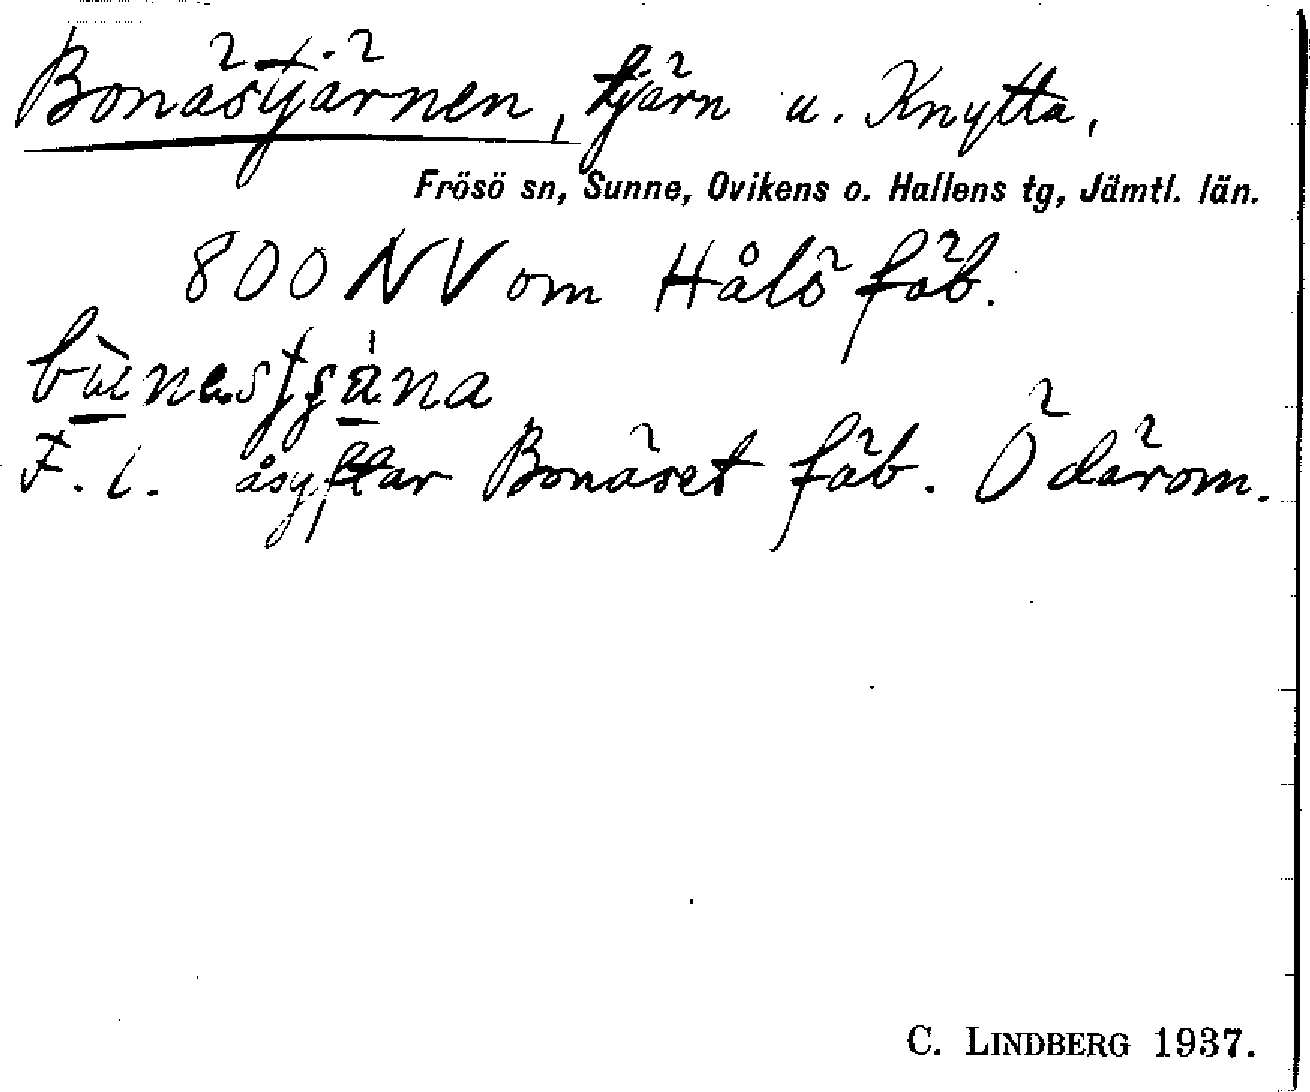 Bonästjärnen, tjärn u. Knytta,
Frösö sn, Sunne, Ovikens o. Hallens tg, Jämtl. län.
800 NV om Hålö fäb.
F. l. åsyftar Bonäset fäb. Ö därom.
C. LINDBERG 1937.